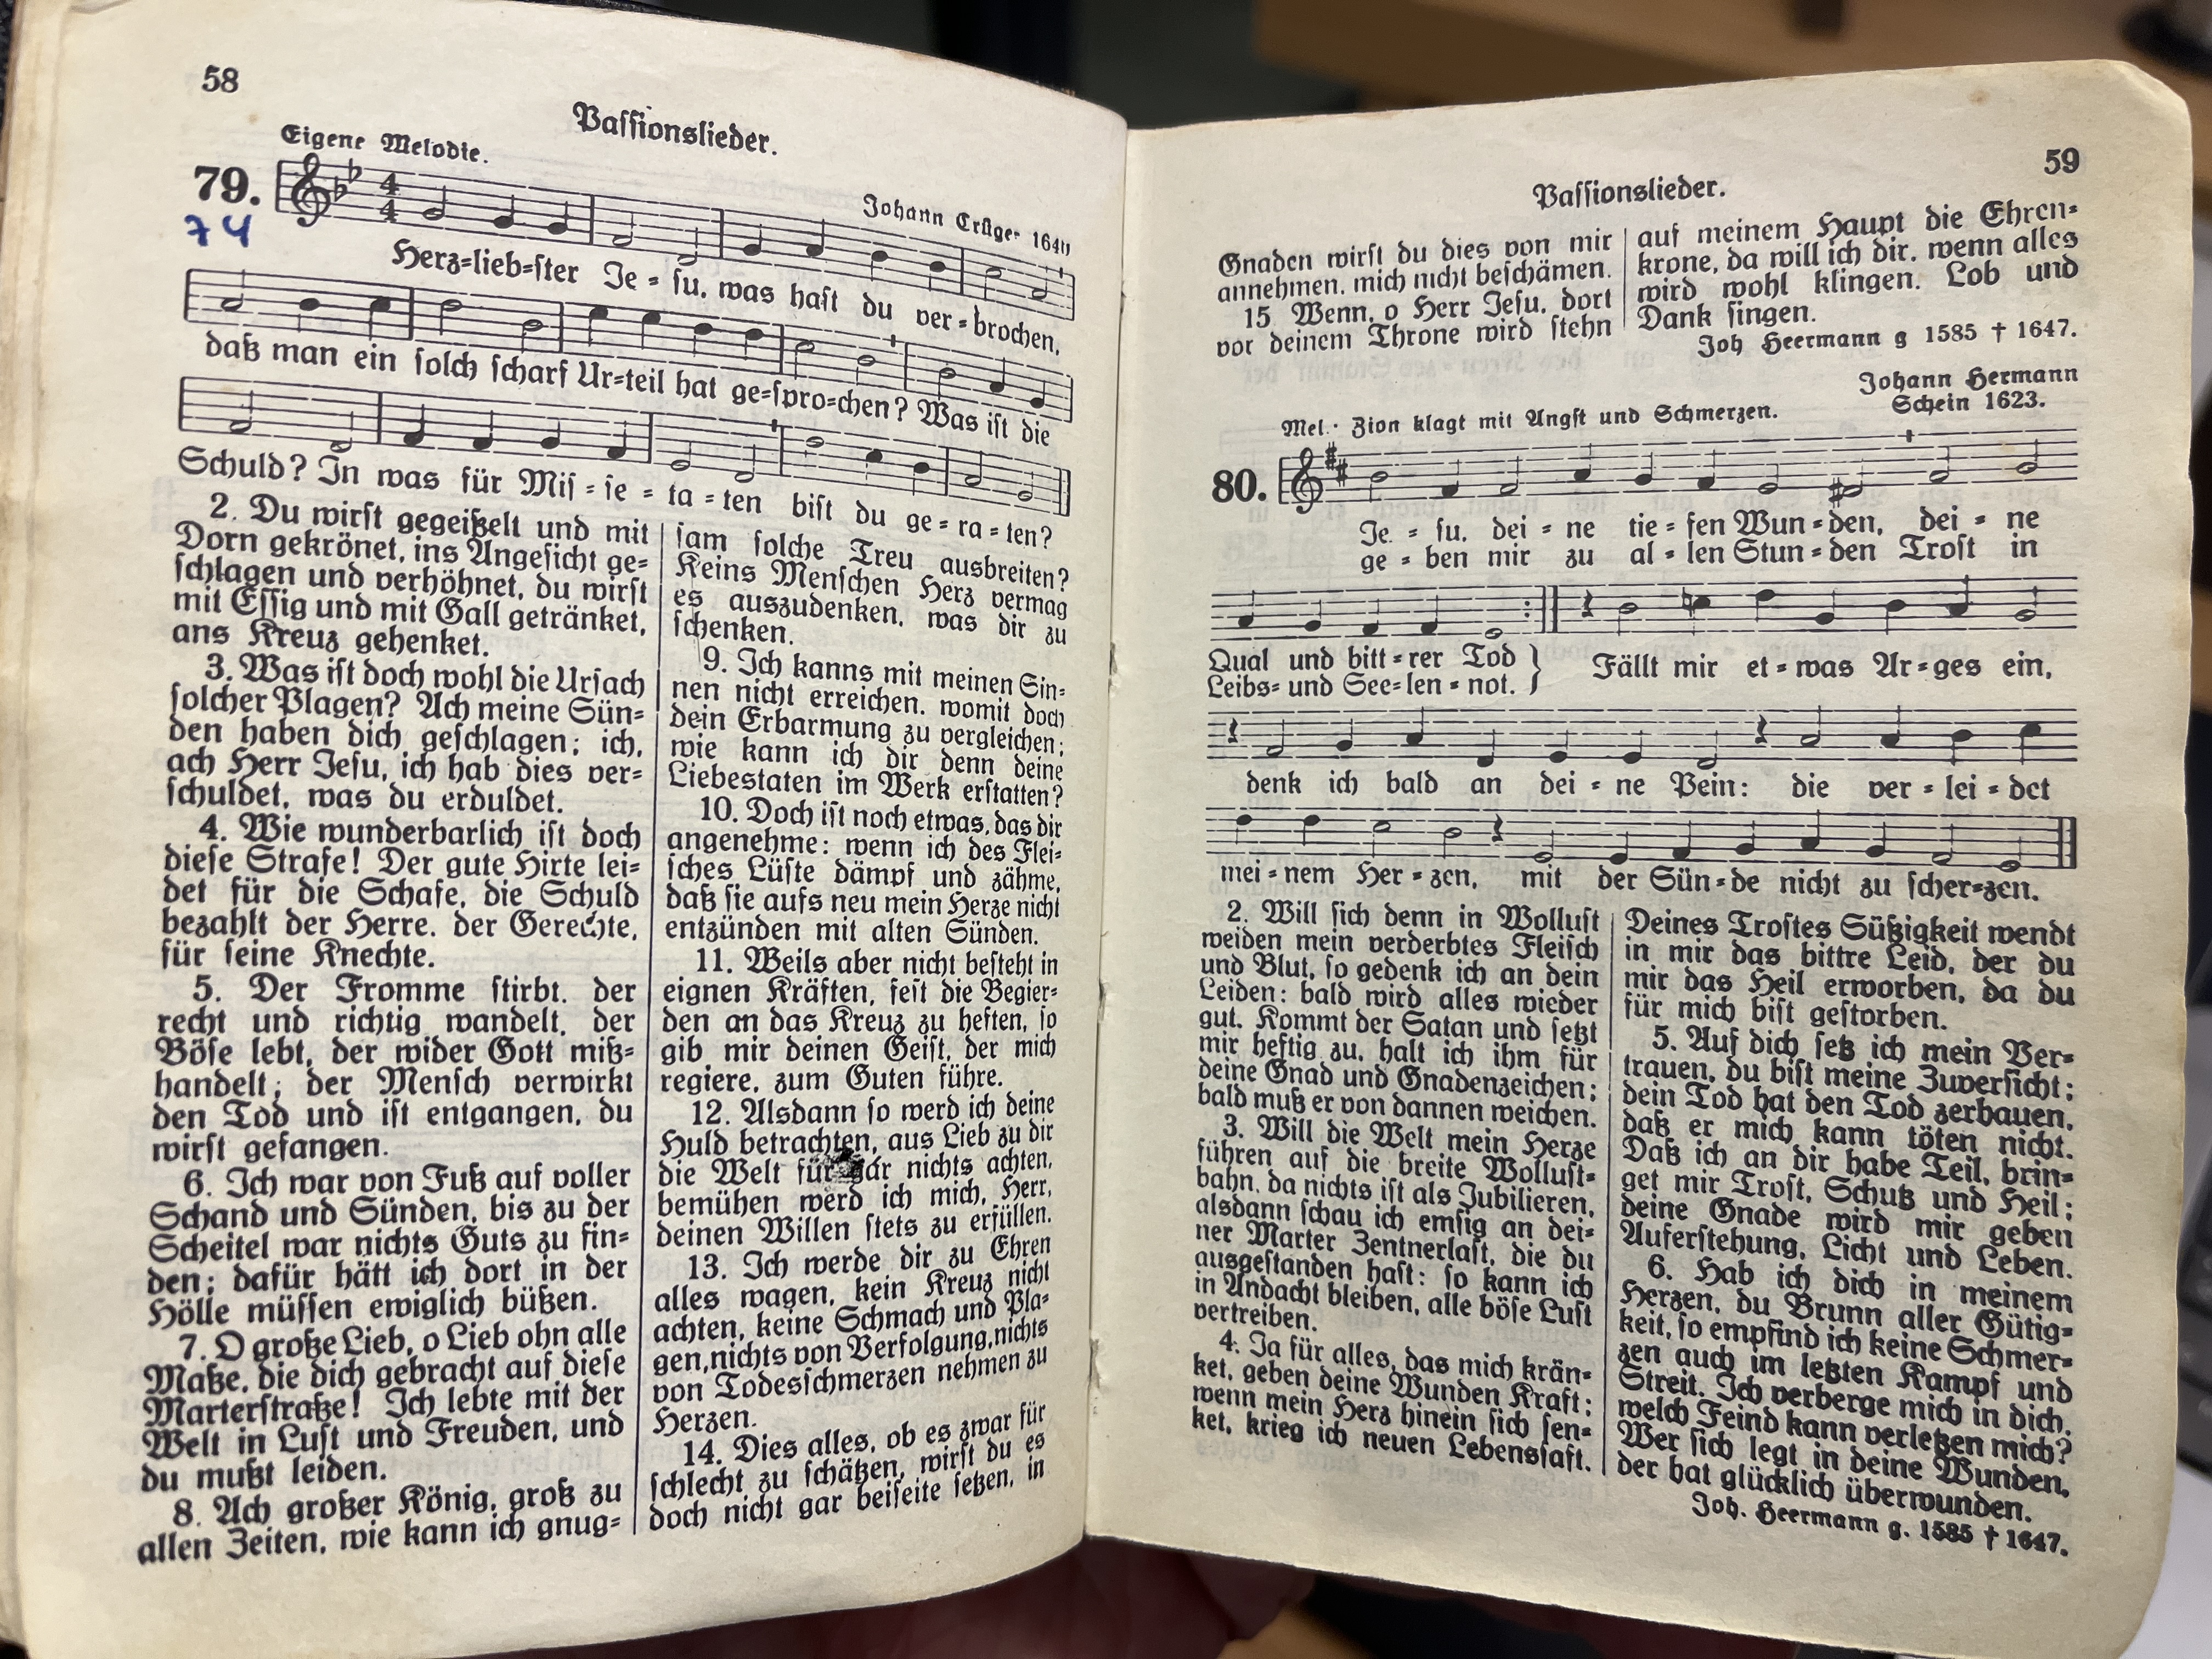 58
Passionslieder.
Eigene Melodie.
Johann Crüger 1640
79.
74
Herz=lieb=ster Je = su, was hast du ver = brochen,
daß man ein solch scharf Ur=teil hat ge=spro=chen? Was ist die
Schuld? In was für Mis = se = ta = ten bist du ge = ra = ten?
2. Du wirst gegeißelt und mit
Dorn gekrönet, ins Angesicht ge=
schlagen und verhöhnet, du wirst
mit Essig und mit Gall getränket,
ans Kreuz gehenket.
3. Was ist doch wohl die Ursach
solcher Plagen? Ach meine Sün=
den haben dich geschlagen; ich,
ach Herr Jesu, ich hab dies ver=
schuldet, was du erduldet.
4. Wie wunderbarlich ist doch
diese Strafe! Der gute Hirte lei=
det für die Schafe, die Schuld
bezahlt der Herre, der Gerechte,
für seine Knechte.
5. Der Fromme stirbt, der
recht und richtig wandelt, der
Böse lebt, der wider Gott miß=
handelt; der Mensch verwirkt
den Tod und ist entgangen, du
wirst gefangen.
6. Ich war von Fuß auf voller
Schand und Sünden, bis zu der
Scheitel war nichts Guts zu fin=
den; dafür hätt ich dort in der
Hölle müssen ewiglich büßen.
7. O große Lieb, o Lieb ohn alle
Maße, die dich gebracht auf diese
Marterstraße! Ich lebte mit der
Welt in Lust und Freuden, und
du mußt leiden.
8. Ach großer König, groß zu
allen Zeiten, wie kann ich gnug=
sam solche Treu ausbreiten?
Keins Menschen Herz vermag
es auszudenken, was dir zu
schenken.
9. Ich kanns mit meinen Sin=
nen nicht erreichen, womit doch
dein Erbarmung zu vergleichen;
wie kann ich dir denn deine
Liebestaten im Werk erstatten?
10. Doch ist noch etwas, das dir
angenehme: wenn ich des Flei=
sches Lüste dämpf und zähme,
daß sie aufs neu mein Herze nicht
entzünden mit alten Sünden.
11. Weils aber nicht besteht in
eignen Kräften, fest die Begier=
den an das Kreuz zu heften, so
gib mir deinen Geist, der mich
regiere, zum Guten führe.
12. Alsdann so werd ich deine
Huld betrachten, aus Lieb zu dir
die Welt für gar nichts achten,
bemühen werd ich mich, Herr,
deinen Willen stets zu erfüllen.
13. Ich werde dir zu Ehren
alles wagen, kein Kreuz nicht
achten, keine Schmach und Pla=
gen, nichts von Verfolgung, nichts
von Todesschmerzen nehmen zu
Herzen.
14. Dies alles, ob es zwar für
schlecht zu schätzen, wirst du es
doch nicht gar beiseite setzen, in
59
Passionslieder.
Gnaden wirst du dies von mir
annehmen, mich nicht beschämen.
15. Wenn, o Herr Jesu, dort
vor deinem Throne wird stehn
auf meinem Haupt die Ehren=
krone, da will ich dir, wenn alles
wird wohl klingen, Lob und
Dank singen.
Joh Heermann g 1585 † 1647.
Johann Hermann
Schein 1623.
Mel.: Zion klagt mit Angst und Schmerzen.
80.
Je = su, dei = ne tie = fen Wun = den, dei = ne
ge = ben mir zu al = len Stun = den Trost in
Qual und bitt = rer Tod } Fällt mir et = was Ar = ges ein,
Leibs= und See=len = not. }
denk ich bald an dei = ne Pein: die ver = lei = det
mei = nem Her = zen, mit der Sün = de nicht zu scher=zen.
2. Will sich denn in Wollust
weiden mein verderbtes Fleisch
und Blut, so gedenk ich an dein
Leiden: bald wird alles wieder
gut. Kommt der Satan und setzt
mir heftig zu, halt ich ihm für
deine Gnad und Gnadenzeichen;
bald muß er von dannen weichen.
3. Will die Welt mein Herze
führen auf die breite Wollust=
bahn, da nichts ist als Jubilieren,
alsdann schau ich emsig an dei=
ner Marter Zentnerlast, die du
ausgestanden hast: so kann ich
in Andacht bleiben, alle böse Lust
vertreiben.
4. Ja für alles, das mich krän=
ket, geben deine Wunden Kraft;
wenn mein Herz hinein sich sen=
ket, krieg ich neuen Lebenssaft.
Deines Trostes Süßigkeit wendt
in mir das bittre Leid, der du
mir das Heil erworben, da du
für mich bist gestorben.
5. Auf dich setz ich mein Ver=
trauen, du bist meine Zuversicht;
dein Tod hat den Tod zerhauen,
daß er mich kann töten nicht.
Daß ich an dir habe Teil, brin=
get mir Trost, Schutz und Heil;
deine Gnade wird mir geben
Auferstehung, Licht und Leben.
6. Hab ich dich in meinem
Herzen, du Brunn aller Gütig=
keit, so empfind ich keine Schmer=
zen auch im letzten Kampf und
Streit. Ich verberge mich in dich,
welch Feind kann verletzen mich?
Wer sich legt in deine Wunden,
der hat glücklich überwunden.
Joh. Heermann g. 1585 † 1647.